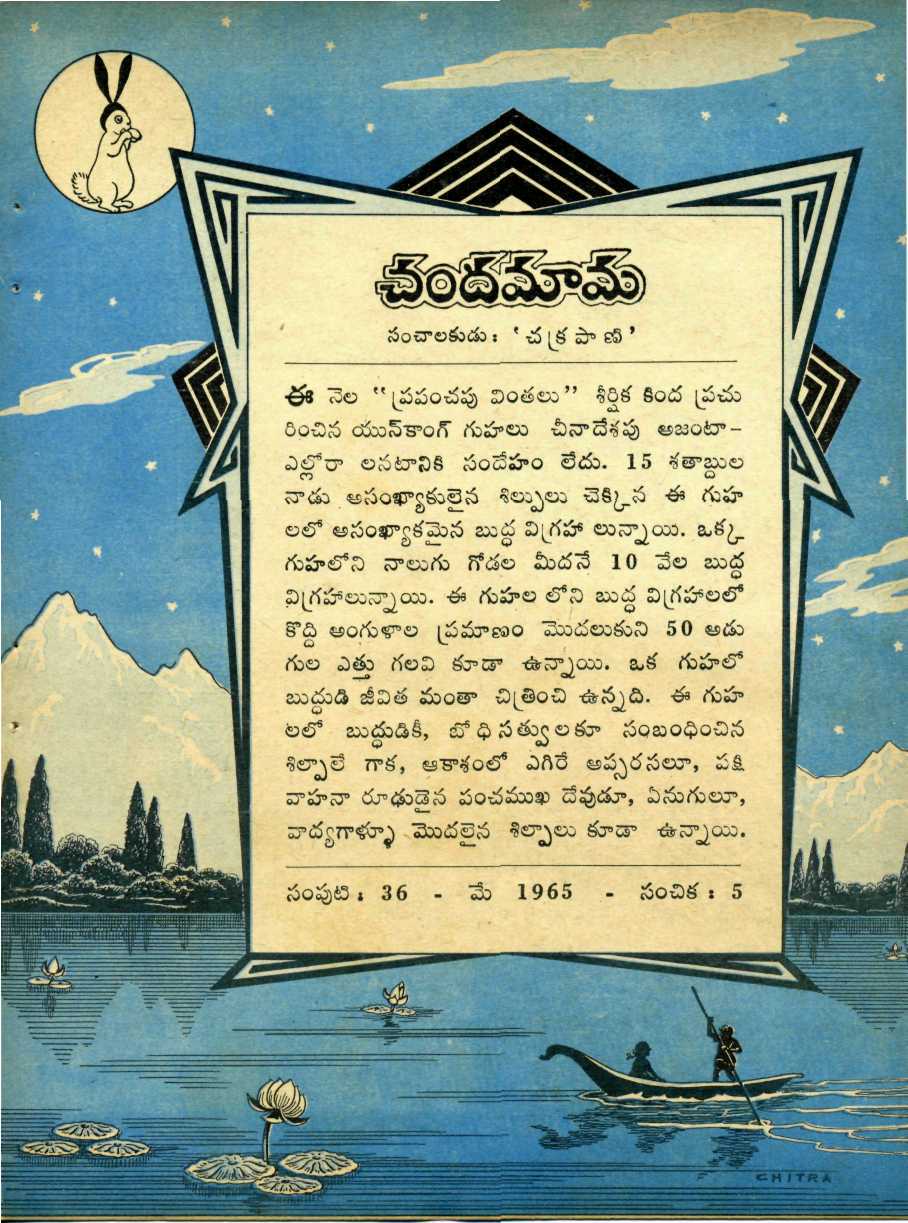 చందమామ
సంచాలకుడు : ' చక్రపాణి '
ఈ నెల “ప్రపంచపు వింతలు” శీర్షిక కింద ప్రచు
రించిన యున్‌కాంగ్ గుహలు చీనాదేశపు అజంటా–
ఎల్లోరా లనటానికి సందేహం లేదు. 15 శతాబ్దుల
నాడు అసంఖ్యాకులైన శిల్పులు చెక్కిన ఈ గుహ
లలో అసంఖ్యాకమైన బుద్ధ విగ్రహా లున్నాయి. ఒక్క
గుహలోని నాలుగు గోడల మీదనే 10 వేల బుద్ధ
విగ్రహాలున్నాయి. ఈ గుహల లోని బుద్ధ విగ్రహాలలో
కొద్ది అంగుళాల ప్రమాణం మొదలుకుని 50 అడు
గుల ఎత్తు గలవి కూడా ఉన్నాయి. ఒక గుహలో
బుద్ధుడి జీవిత మంతా చిత్రించి ఉన్నది. ఈ గుహ
లలో బుద్ధుడికీ, బోధిసత్వులకూ సంబంధించిన
శిల్పాలే గాక, ఆకాశంలో ఎగిరే అప్సరసలూ, పక్షి
వాహనా రూఢుడైన పంచముఖ దేవుడూ, ఏనుగులూ,
వాద్యగాళ్ళూ మొదలైన శిల్పాలు కూడా ఉన్నాయి.
సంపుటి : 36 - మే 1965 - సంచిక : 5
CHITRA